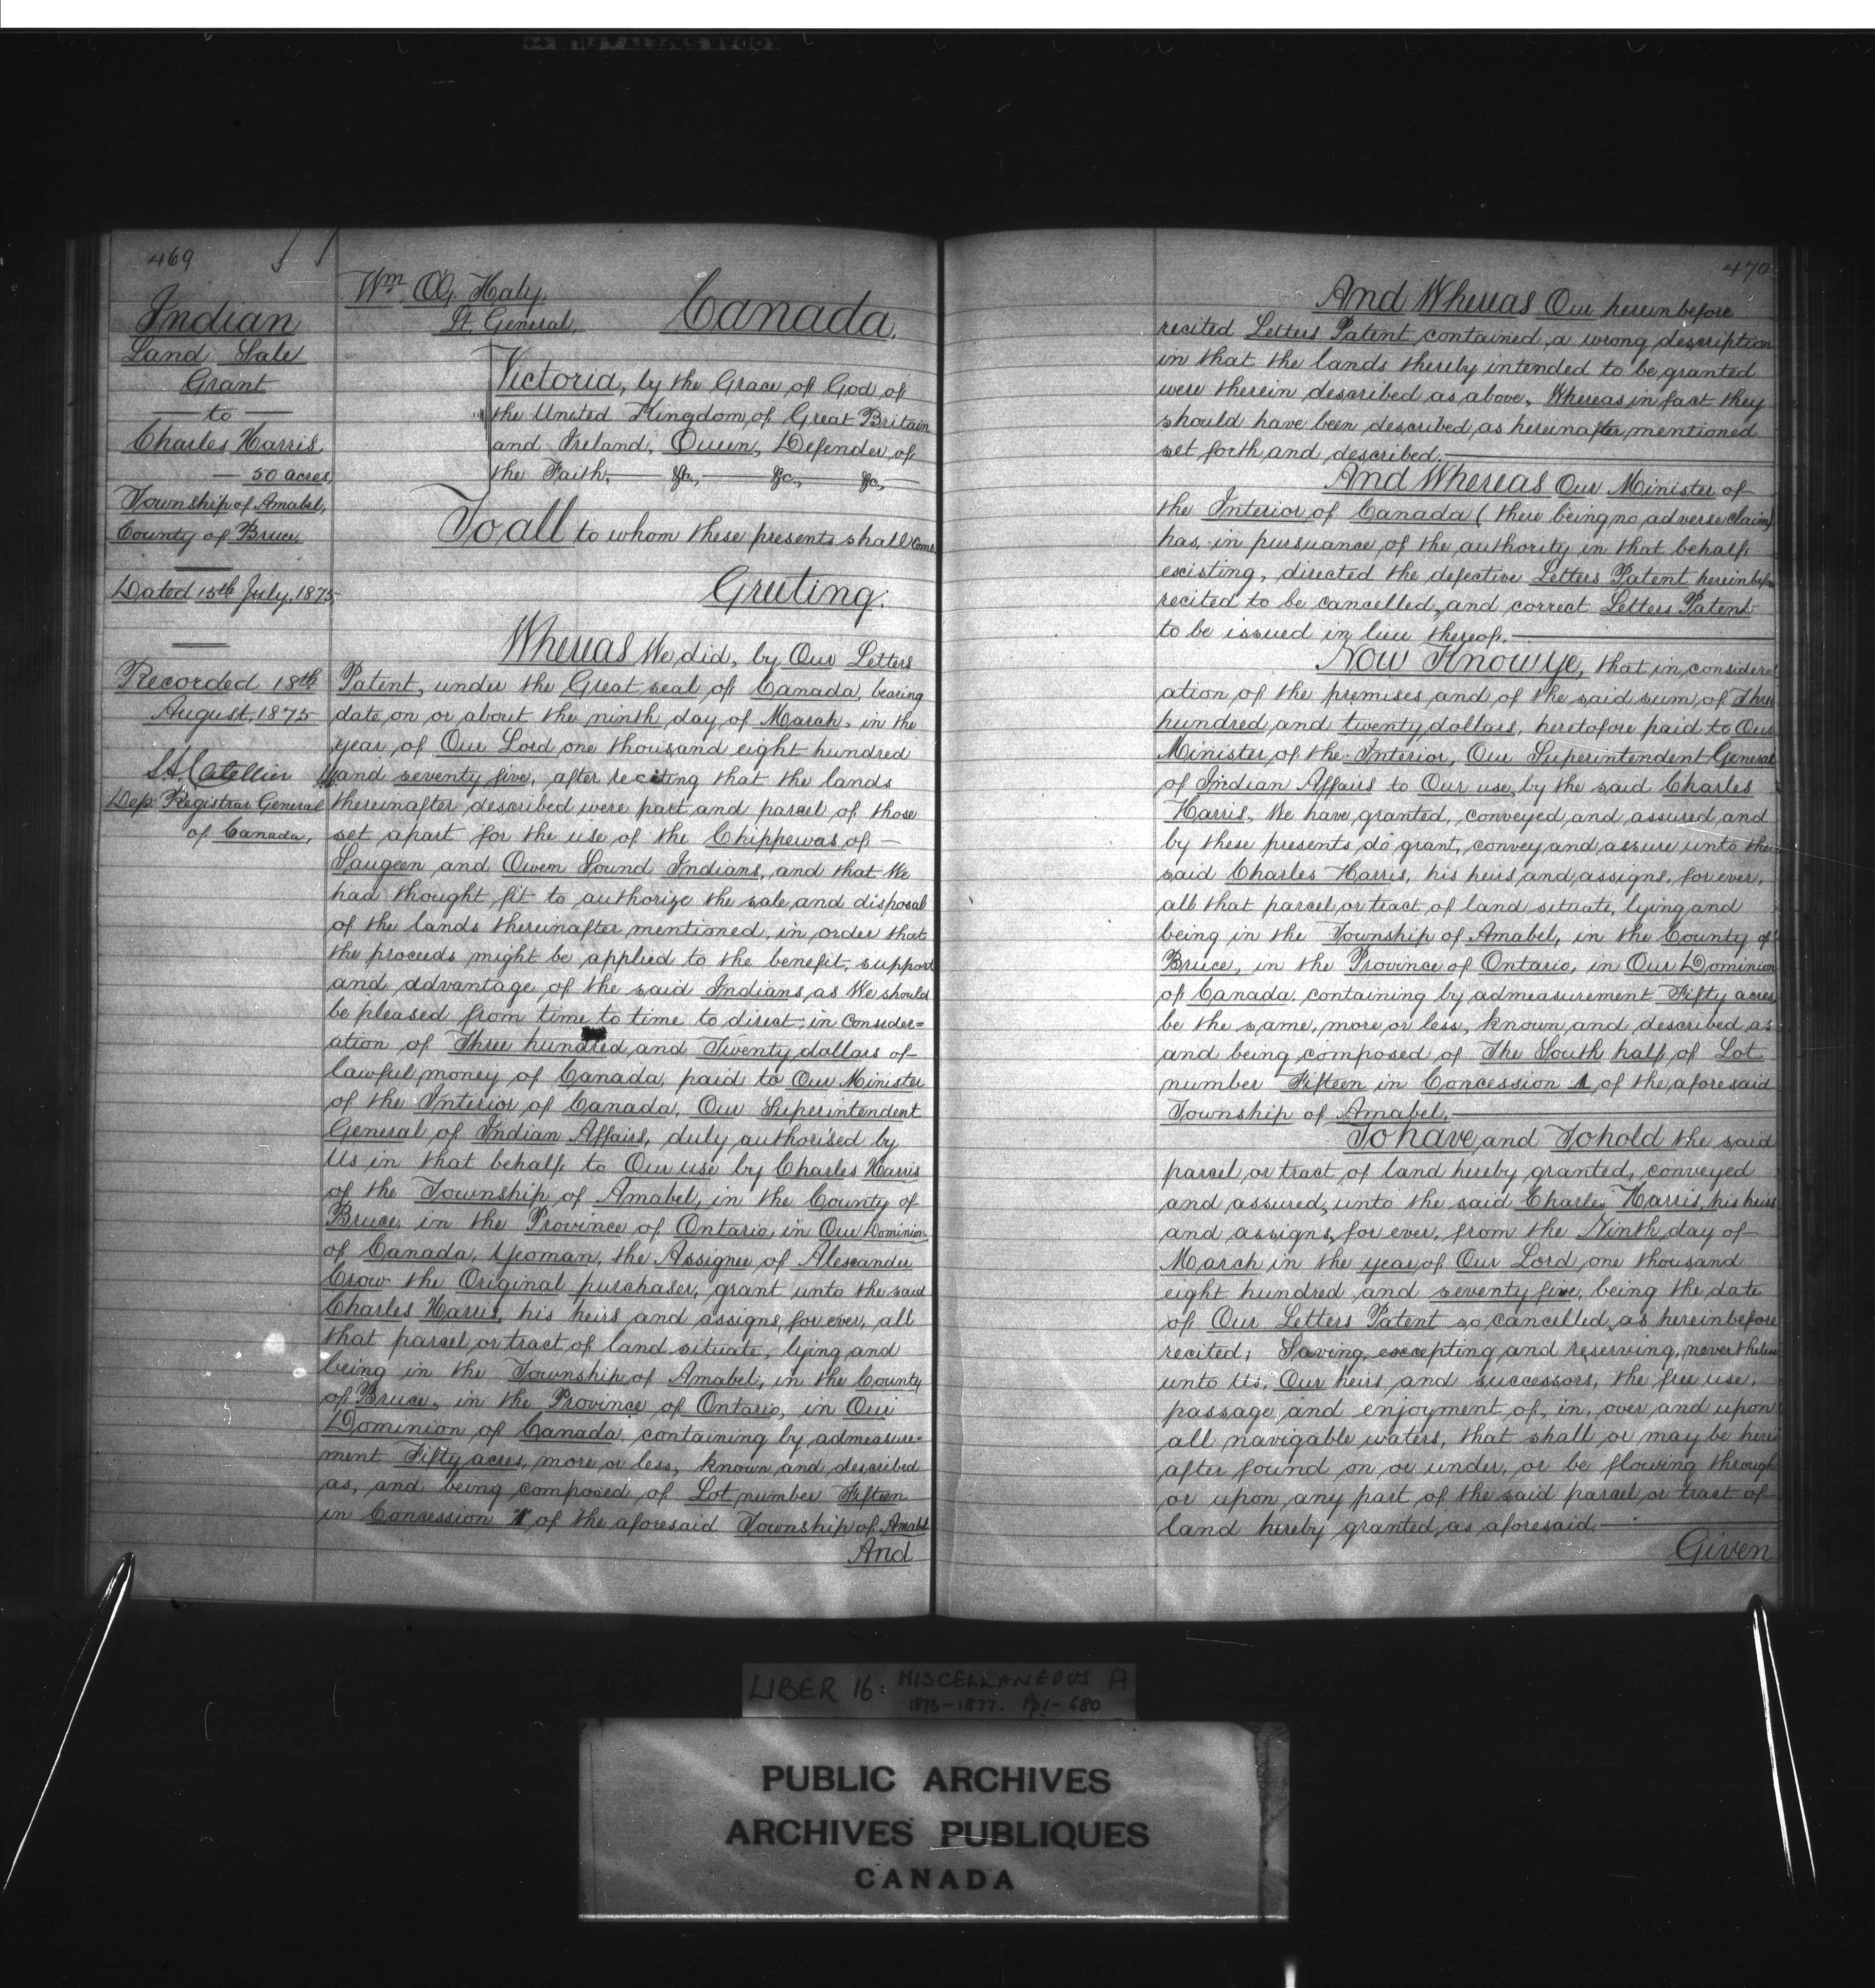 469
Indian
Land Sale
Grant
to
Charles Harris,
50 acres,
Township of Amabel,
County of Bruce,
Dated 15th July, 1875,
Recorded 18th
August, 1875
Dep: Registrar General
of Canada,
Wm. O'G. Haly,
Lt. General,
Canada,
Victoria, by the Grace of God of
the United Kingdom, of Great Britain
and Ireland, Queen, Defender of
the Faith, &c., &c., &c.,
To all to whom these presents shall Come
Greeting:
Whereas We, did, by Our Letters
Patent, under the Great seal of Canada, bearing
date on or about the ninth day of March, in the
year of Our Lord one thousand eight hundred
and seventy five, after reciting that the lands
thereinafter described were part and parcel of those
set apart for the use of the Chippewas of
Saugeen and Owen Sound Indians, and that We
had thought fit to authorize the sale and disposal
of the lands thereinafter mentioned, in order that
the proceeds might be applied to the benefit, support
and advantage of the said Indians, as We should
be pleased from time to time to direct; in consider=
ation of Three hundred and Twenty dollars of
lawful money of Canada, paid to Our Minister
of the Interior of Canada, Our Superintendent
General of Indian Affairs, duly authorised by
Us in that behalf, to Our use by Charles Harris
of the Township of Amabel, in the County of
Bruce, in the Province of Ontario, in Our Dominion
of Canada, Yeoman, the Assignee of Alexander
Crow the Original purchaser, grant unto the said
Charles Harris, his heirs and assigns, for ever, all
that parcel or tract of land situate, lying and
being in the Township of Amabel, in the County
of Bruce, in the Province of Ontario, in Our
Dominion of Canada, containing by admeasure=
ment Fifty acres, more or less, known and described
as, and being composed of Lot number Fifteen
in Concession 1 of the aforesaid Township of Amabel
And
470
And Whereas Our hereinbefore
recited Letters Patent contained a wrong description
in that the lands thereby intended to be granted
were therein described as above, Whereas in fact they
should have been described as hereinafter mentioned
set forth and described.
And Whereas Our Minister of
the Interior of Canada (there being no adverse claim)
has, in pursuance of the authority in that behalf
existing, directed the defective Letters Patent hereinbefore
recited to be cancelled, and correct Letters Patent
to be issued in lieu thereof.
Now Know Ye, that in consider
ation of the premises and of the said sum of Three
hundred and twenty dollars, heretofore paid to Our
Minister of the Interior, Our Superintendent General
of Indian Affairs to Our use, by the said Charles
Harris, We have granted, conveyed and assured and
by these presents do grant, convey and assure unto the
said Charles Harris, his heirs and assigns, for ever,
all that parcel or tract of land situate, lying and
being in the Township of Amabel, in the County of
Bruce, in the Province of Ontario, in Our Dominion
of Canada, containing by admeasurement Fifty acres
be the same, more or less, known and described as
and being composed of The South half of Lot
number Fifteen in Concession 1 of the aforesaid
Township of Amabel.
To have and To hold the said
parcel or tract of land hereby granted, conveyed
and assured, unto the said Charles Harris, his heirs
and assigns, for ever, from the Ninth day of
March in the year of Our Lord, one thousand
eight hundred and seventy five, being the date
of Our Letters Patent so cancelled, as hereinbefore
recited; Saving, excepting and reserving, nevertheless
unto Us, Our heirs and successors, the free use,
passage and enjoyment of, in, over and upon
all navigable waters, that shall or may be here
after found on or under, or be flowing through
or upon any part of the said parcel or tract of
land hereby granted, as aforesaid.
Given
LIBER 16: MISCELLANEOUS A
1873-1877. Pp 1-680
PUBLIC ARCHIVES
ARCHIVES PUBLIQUES
CANADA